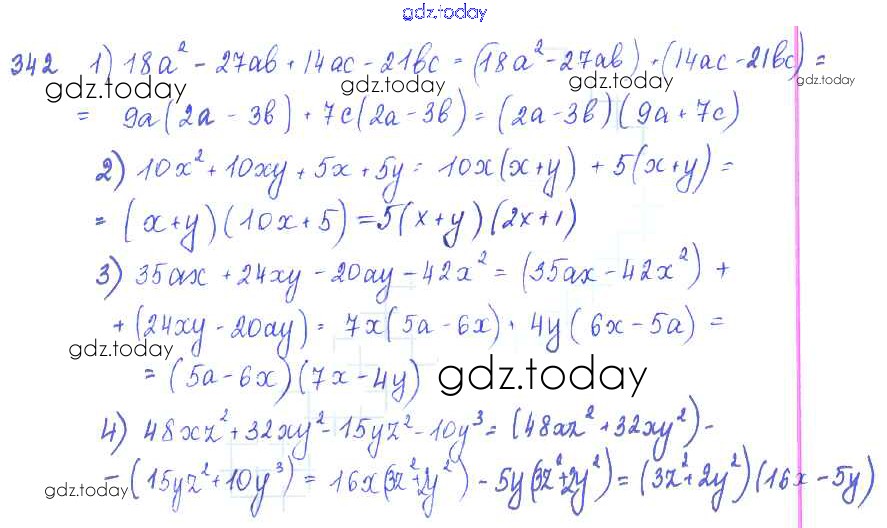 gdz.today
342 1) 18a² - 27ab + 14ac - 21bc = (18a² - 27ab) + (14ac - 21bc) =
gdz.today gdz.today gdz.today gdz.today
= 9a(2a - 3b) + 7c(2a - 3b) = (2a - 3b)(9a + 7c)
2) 10x² + 10xy + 5x + 5y = 10x(x+y) + 5(x+y) =
= (x+y)(10x+5) = 5(x+y)(2x+1)
3) 35ax + 24xy - 20ay - 42x² = (35ax - 42x²) +
+ (24xy - 20ay) = 7x(5a - 6x) + 4y(6x - 5a) =
gdz.today
= (5a - 6x)(7x - 4y)
gdz.today
4) 48xz² + 32xy² - 15yz² - 10y³ = (48xz² + 32xy²) -
- (15yz² + 10y³) = 16x(3z² + 2y²) - 5y(3z² + 2y²) = (3z² + 2y²)(16x - 5y)
gdz.today gdz.today